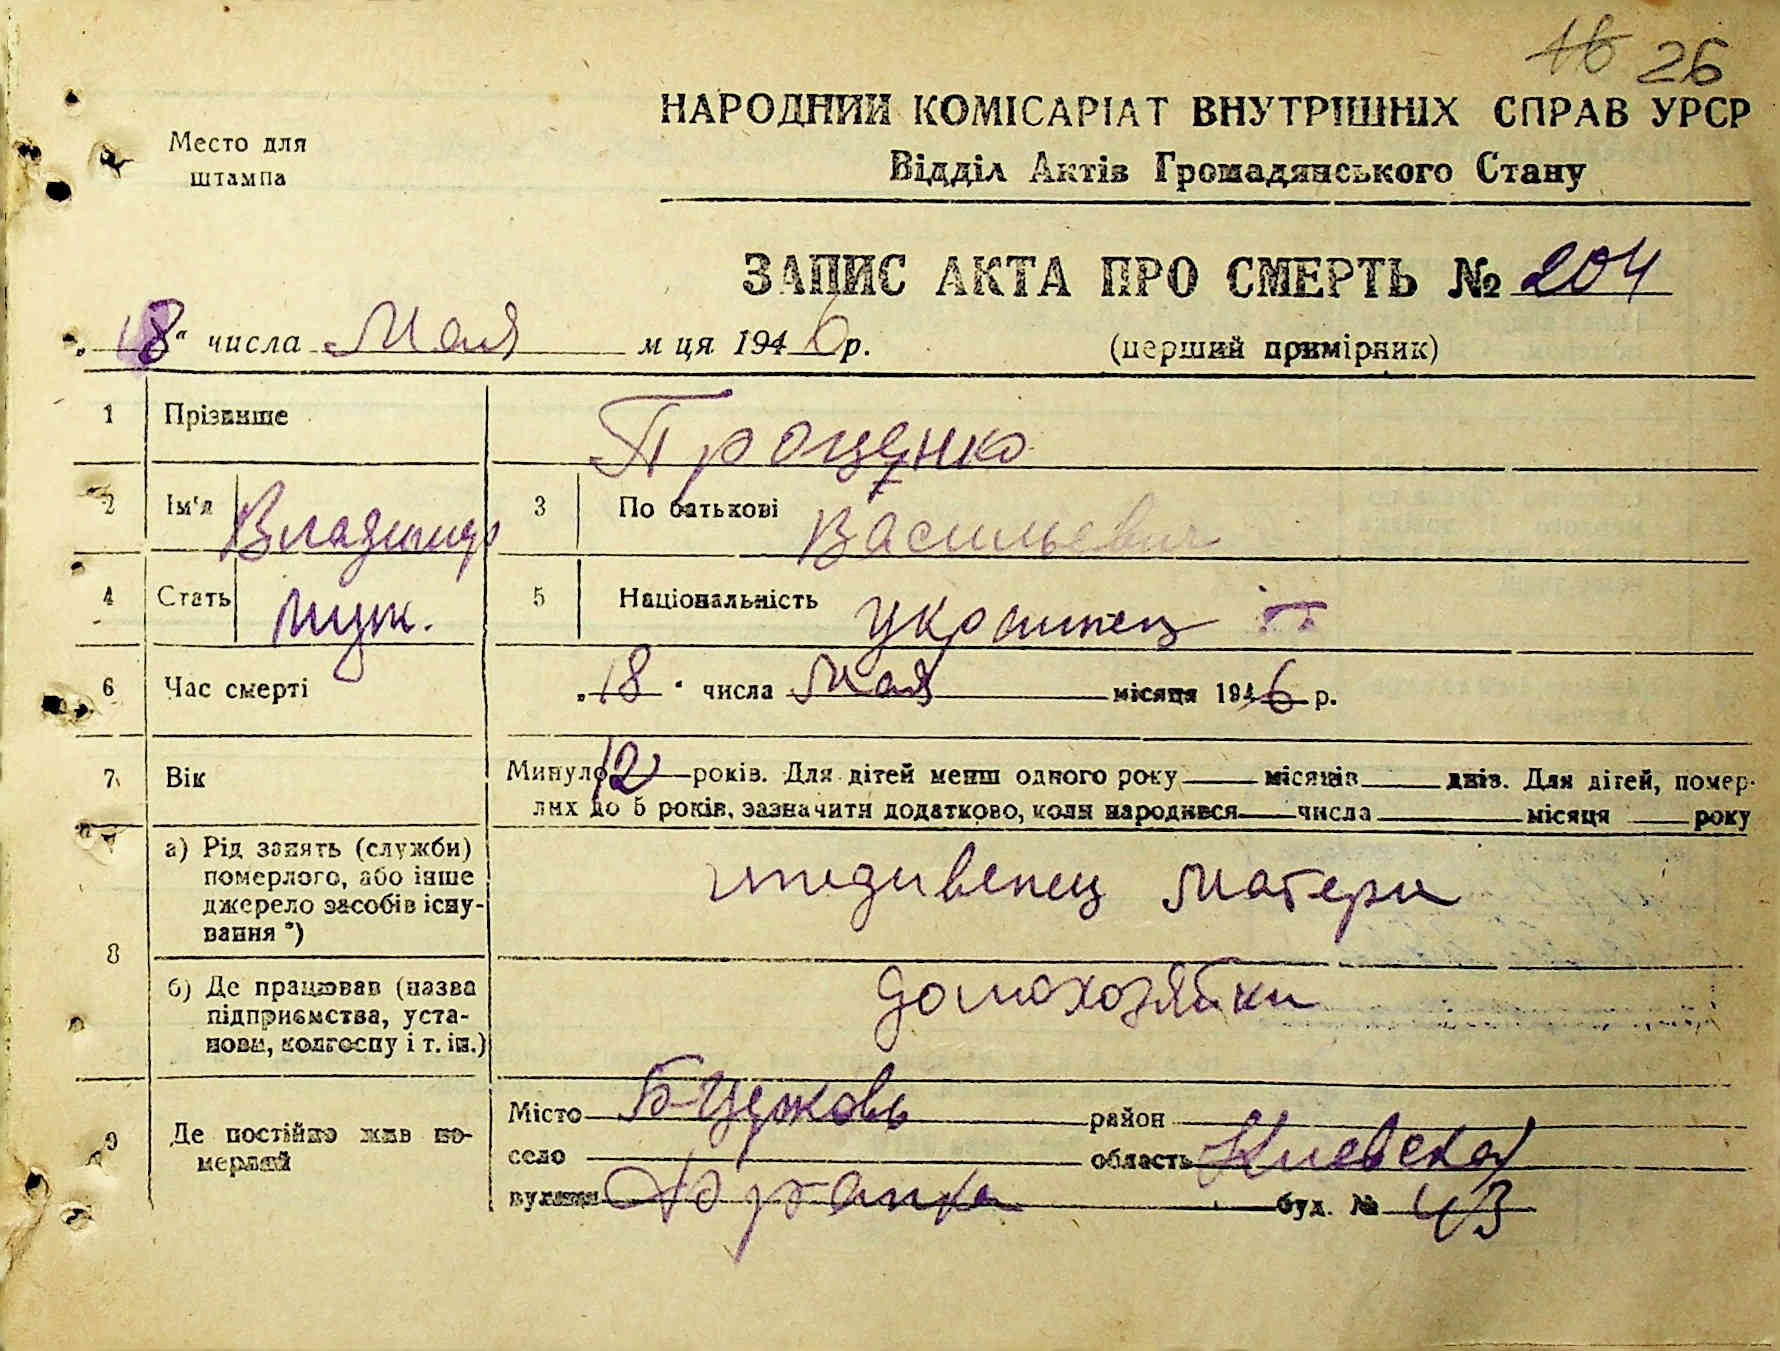 16 26
Место для
штампа
НАРОДНИЙ КОМІСАРІАТ ВНУТРІШНІХ СПРАВ УРСР
Відділ Актів Громадянського Стану
ЗАПИС АКТА ПРО СМЕРТЬ № 204
„18“ числа Мая м ця 1946 р.
(перший примірник)
1 Прізвище Проценко
2 Ім'я Владимир 3 По батькові Васильевич
4 Стать муж. 5 Національність украинец
6 Час смерті „18“ числа Мая місяця 1946 р.
7 Вік Минуло 12 років. Для дітей менш одного року місяців днів. Для дітей, помер-
лих до 5 років, зазначити додатково, коли народився числа місяця року
8 а) Рід занять (служби)
померлого, або інше
джерело засобів існу-
вання *)
иждивенец матери
б) Де працював (назва
підприємства, уста-
нови, колгоспу і т. ін.)
домохозяйки
9 Де постійно жив по-
мерлий
Місто Б-Церковь район
село область Киевская
вулиця Франка буд. № 43